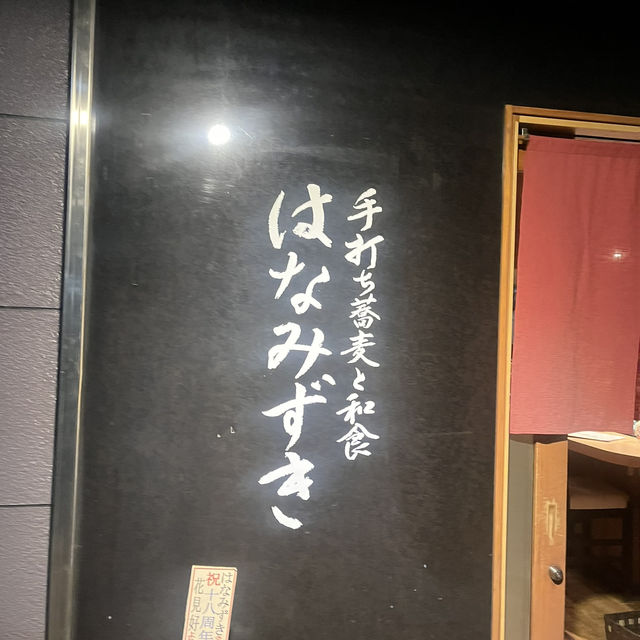 手打ち蕎麦と和食
はなみずき
はなみずき
祝十八周年
花見好